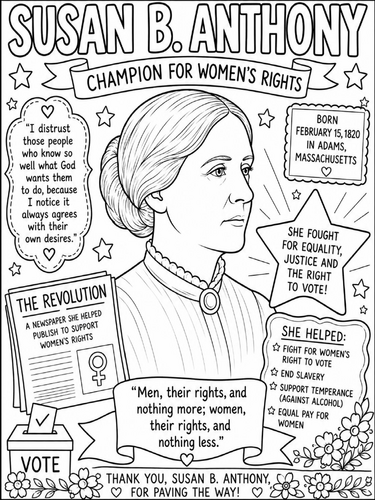 SUSAN B. ANTHONY
CHAMPION FOR WOMEN'S RIGHTS
"I distrust
those people
who know so
well what God
wants them
to do, because
I notice it
always agrees
with their
own desires."
BORN
FEBRUARY 15, 1820
IN ADAMS,
MASSACHUSETTS
SHE FOUGHT
FOR EQUALITY,
JUSTICE AND
THE RIGHT
TO VOTE!
THE REVOLUTION
A NEWSPAPER SHE HELPED
PUBLISH TO SUPPORT
WOMEN'S RIGHTS
SHE HELPED:
FIGHT FOR WOMEN'S
RIGHT TO VOTE
END SLAVERY
SUPPORT TEMPERANCE
(AGAINST ALCOHOL)
EQUAL PAY FOR
WOMEN
"Men, their rights, and
nothing more; women,
their rights, and
nothing less."
VOTE
THANK YOU, SUSAN B. ANTHONY,
FOR PAVING THE WAY!